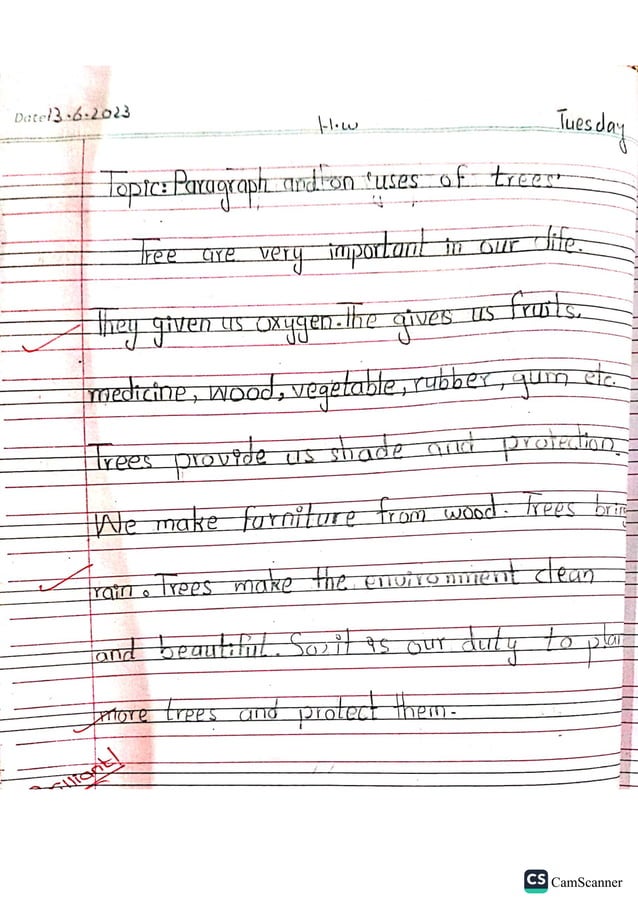 Date 13.6.2023
H.w
Tuesday
Topic: Paragraph and on 'uses of trees'
Tree are very important in our life.
They given us oxygen. The gives us fruits.
medicine, wood, vegetable, rubber, gum etc.
Trees provide us shade and protection.
We make furniture from wood. Trees brin
rain. Trees make the environment clean
and beautiful. So, it is our duty to plan
more trees and protect them.
Brilliant!
CS CamScanner